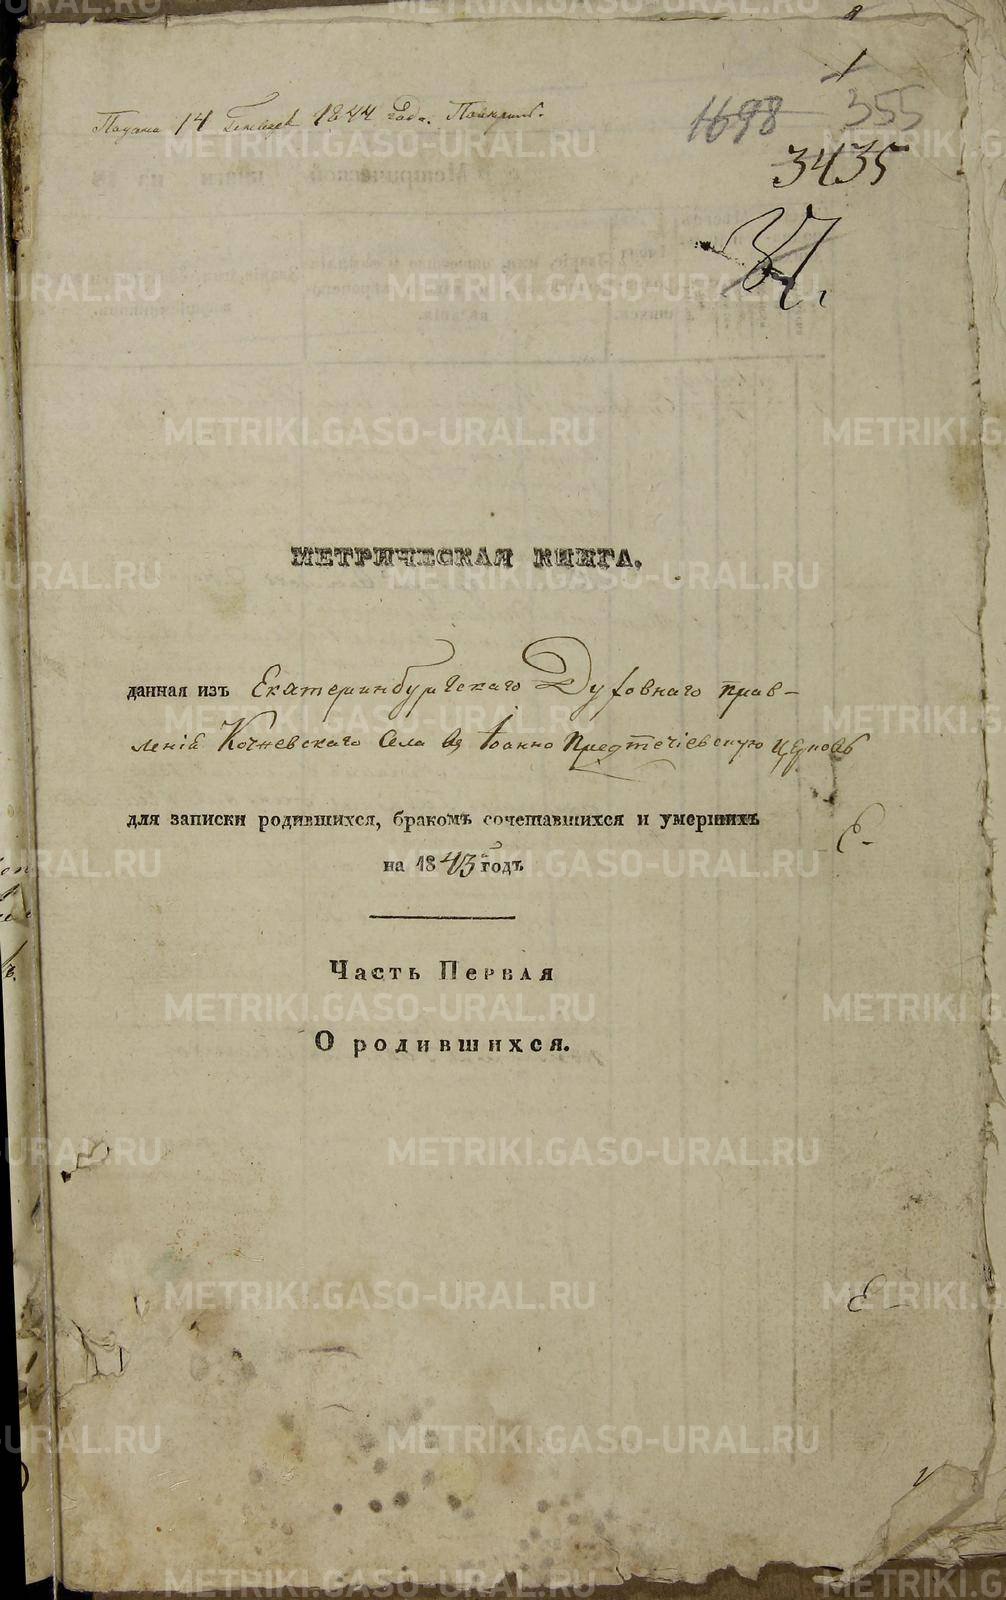 1
Подана 14 Генваря 1844 года.
1698 355
3435
37.
МЕТРИЧЕСКАЯ КНИГА.
данная изъ Екатеринбургскаго Духовнаго прав-
ленія Кочневскаго Села въ Іоанно Предтечіевскую церковь
для записки родившихся, бракомъ сочетавшихся и умершихъ
на 1843 годъ
Е.
Часть Первая
О родившихся.
Е
METRIKI.GASO-URAL.RU